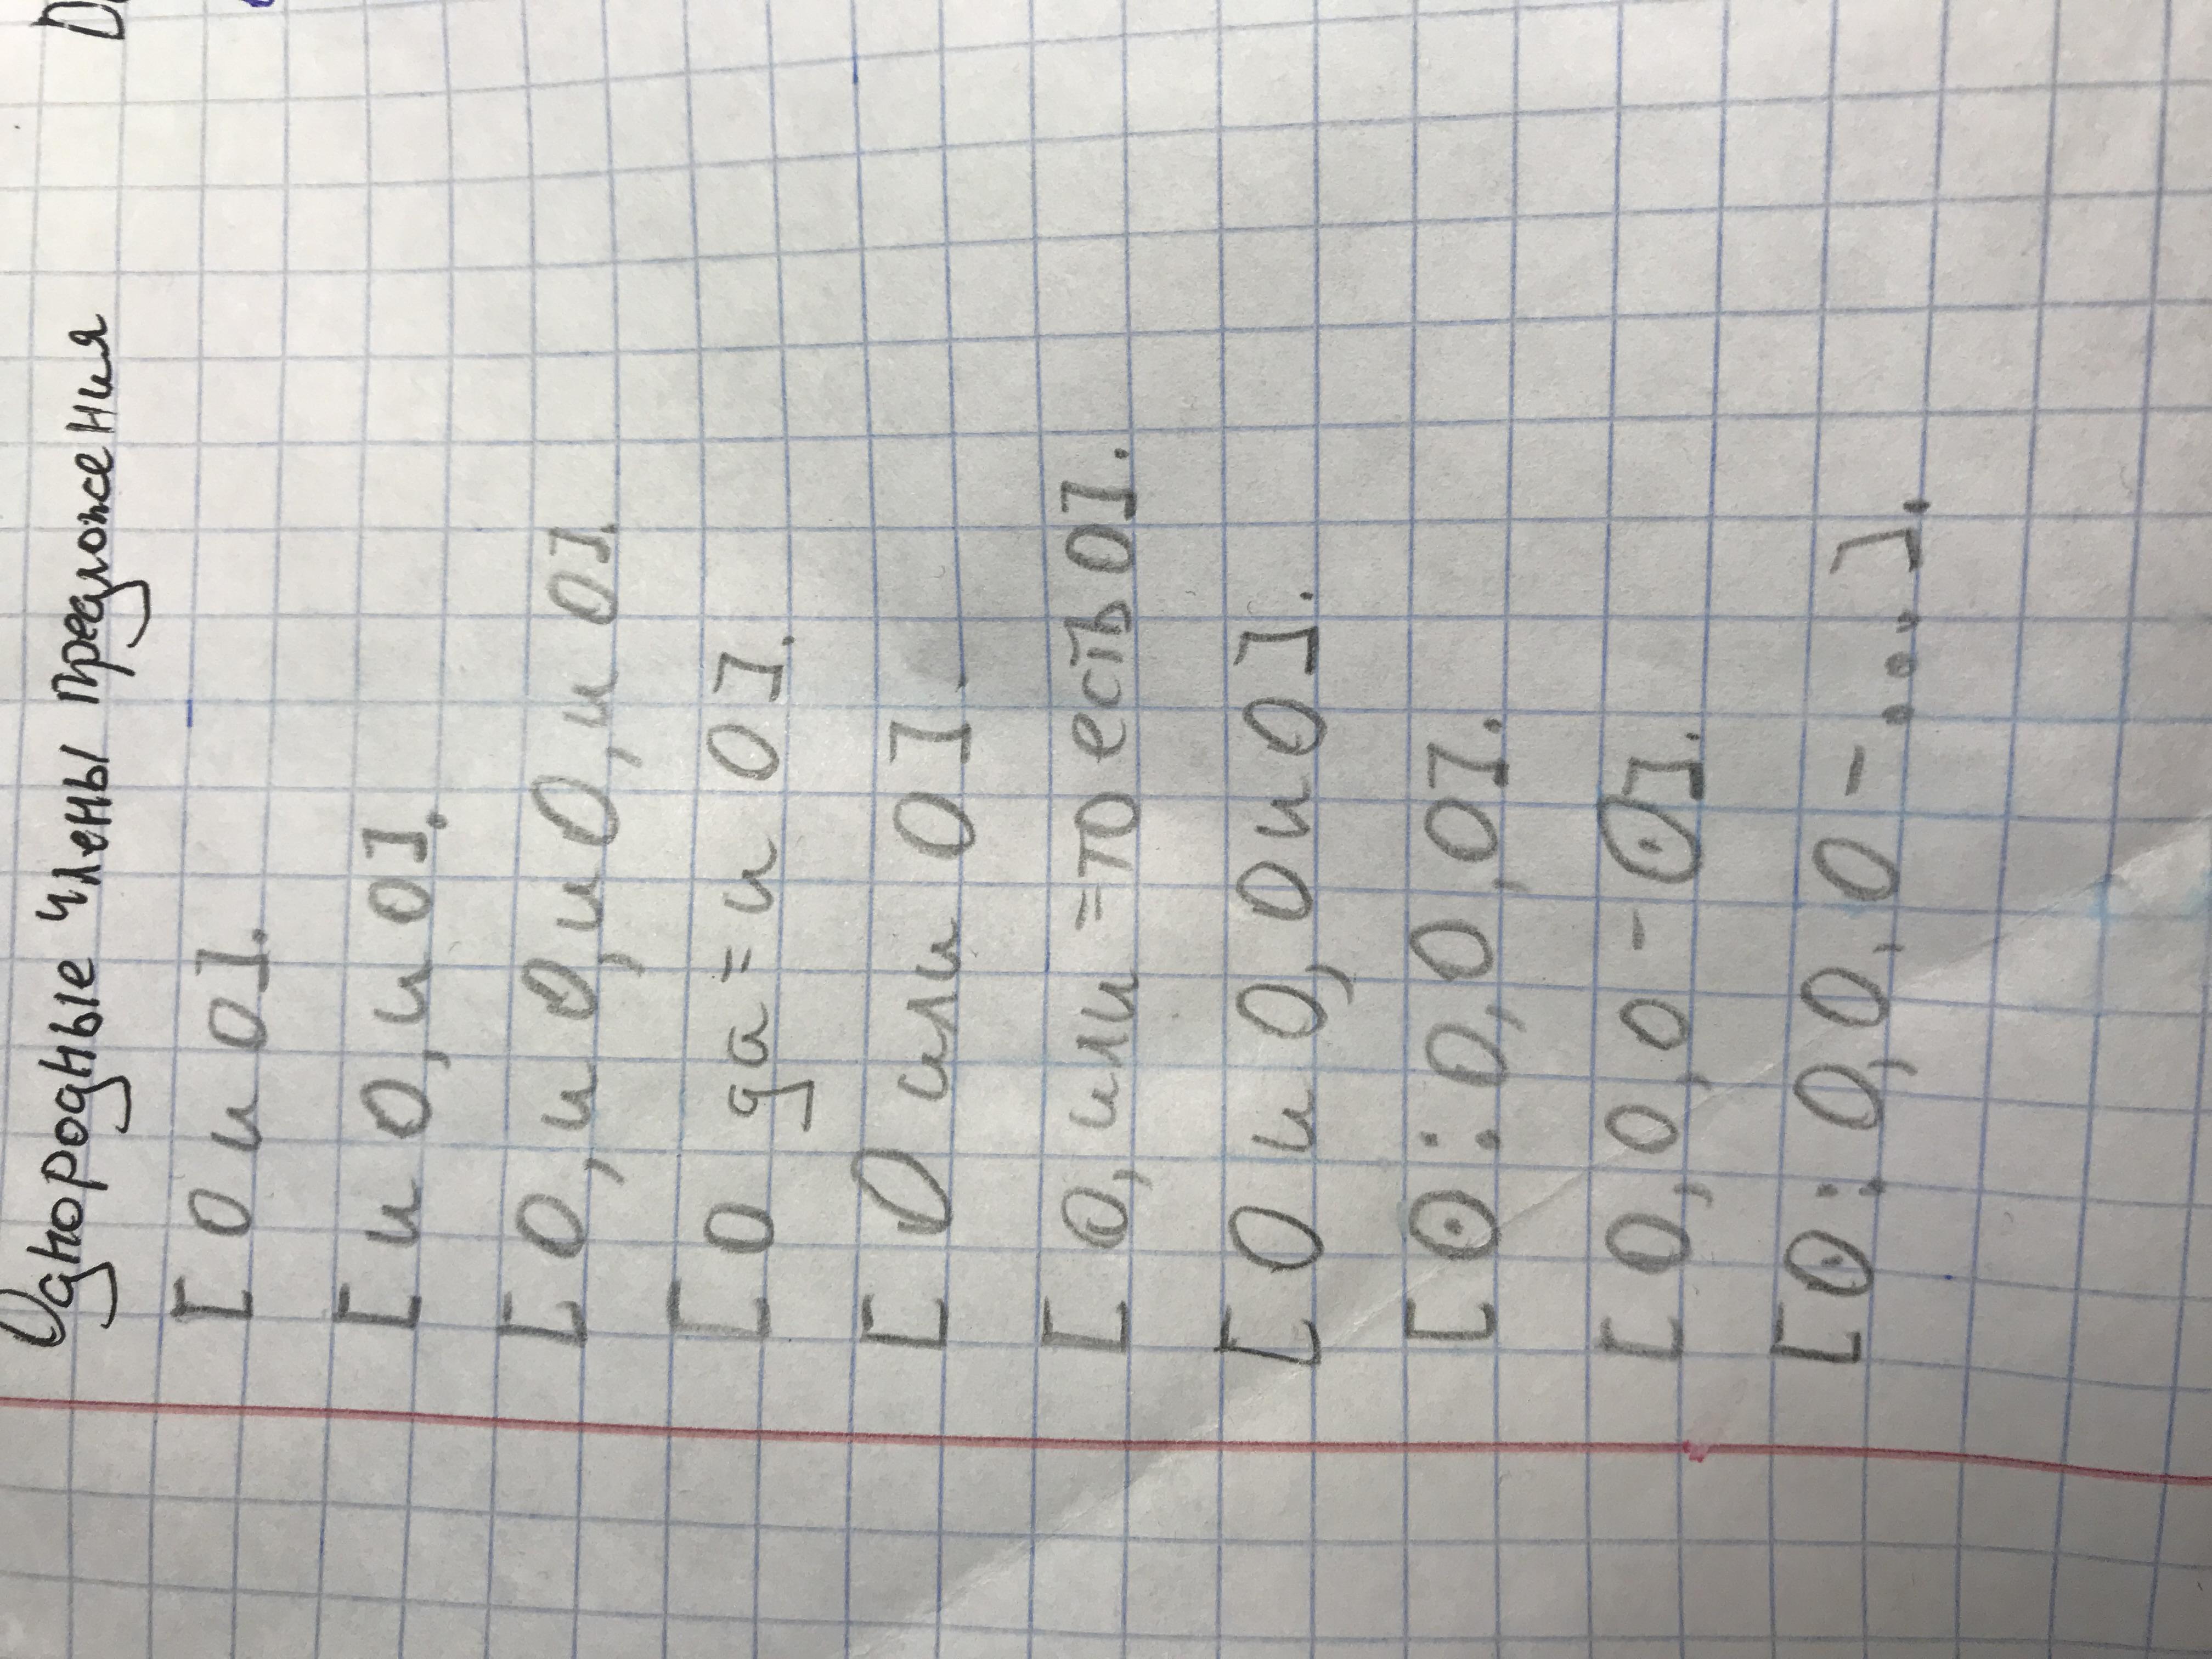 Однородные члены предложения
[О и О].
[и О, и О].
[О, и О, и О, и О].
[О да = и О].
[О или О].
[О, или = то есть О].
[О и О, О и О].
[⊙: О, О, О].
[О, О, О - ⊙].
[⊙: О, О, О - ....].